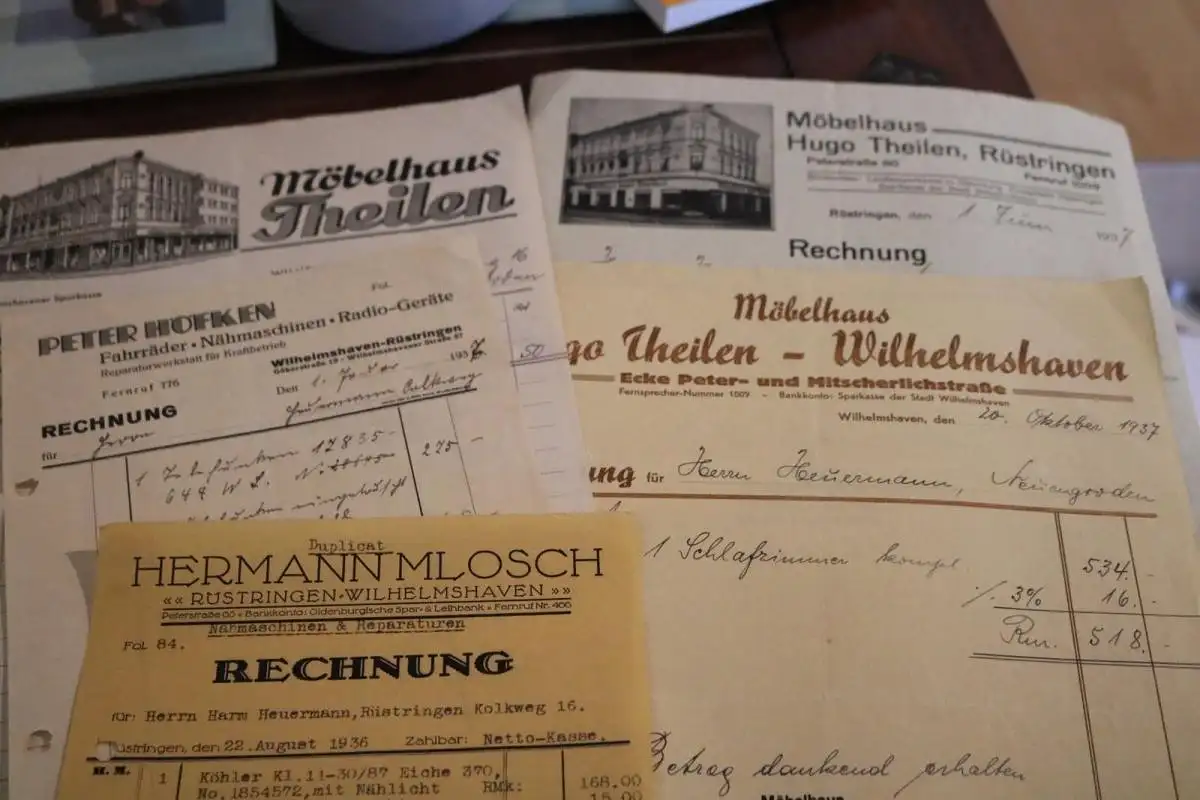 Möbelhaus
Theilen
Sparkasse
50
Möbelhaus
Hugo Theilen, Rüstringen
Peterstraße
Fernruf 1009
Rüstringen, den 1 Juni 1937
Rechnung
PETER HÖFKEN
Fahrräder • Nähmaschinen • Radio-Geräte
Reparaturwerkstatt für Kraftbetrieb
Wilhelmshaven-Rüstringen
Fernruf 776
Den 1. 193
RECHNUNG
für Herrn
1 12835-
644
275 -
Möbelhaus
go Theilen - Wilhelmshaven
Ecke Peter- und Mitscherlichstraße
Fernsprecher-Nummer 1009 - Bankkonto: Sparkasse der Stadt Wilhelmshaven
Wilhelmshaven, den 20. Oktober 1937
ung für Herrn Heuermann, Neuengroden
1 Schlafzimmer kompl. 534.-
./. 3% 16.-
Rm. 518.-
Betrag dankend erhalten
Möbelhaus
Duplicat
HERMANN MLOSCH
«« RÜSTRINGEN-WILHELMSHAVEN »»
Peterstraße 65 • Bankkonto: Oldenburgische Spar- & Leihbank • Fernruf Nr. 466
Nähmaschinen & Reparaturen
Fol. 84.
RECHNUNG
für: Herrn Harm Heuermann, Rüstringen Kolkweg 16.
Rüstringen, den 22. August 1936 Zahlbar: Netto-Kasse.
H.M. 1 Köhler Kl.11-30/87 Eiche 370,
No.1854572, mit Nählicht RMk: 168.00
15.00